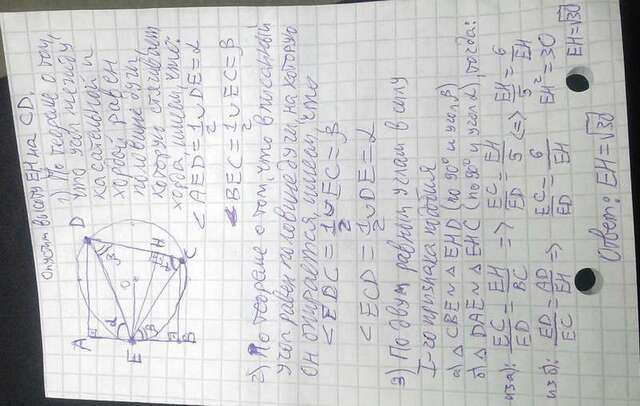 Опустим высоту EH на CD.
1) По теореме о том,
что угол между
касательной и
хордой равен
половине дуги,
которую стягивает
хорда имеем, что:
<AED=1/2 ∪DE=α
<BEC=1/2 ∪EC=β
A
D
E
B
C
H
O
α
β
β
2) По теореме о том что вписанный
угол равен половине дуги, на которую
он опирается, имеем, что
<EDC=1/2 ∪EC=β
<ECD=1/2 ∪DE=α
3) По двум равным углам в силу
I-го признака подобия
а) △CBE∾△EHD (по 90° и угол β)
б) △DAE∾△EHC (по 90° и угол α), тогда:
из а): EC/ED=EH/BC => EC/ED=EH/5 <=> EH/5=6/EH
из б): ED/EC=AD/EH => EC/ED=6/EH EH²=30
EH=√30
Ответ: EH=√30